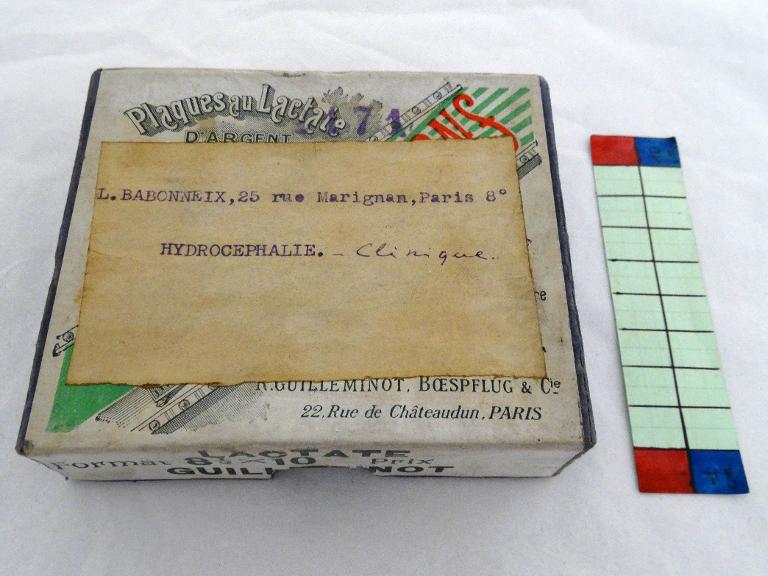 Plaques au Lactate
D'ARGENT
L. BABONNEIX, 25 rue Marignan, Paris 8°
HYDROCEPHALIE. - Clinique.
R. GUILLEMINOT, BŒSPFLUG & Cie
22, Rue de Châteaudun, PARIS
LACTATE
Format Prix